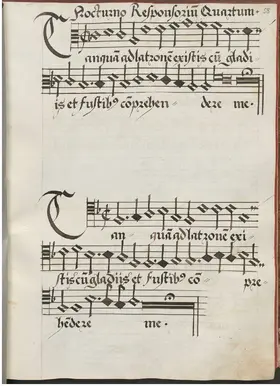 Nocturno Responsoriũ Quartum.
Tanquã ad latronẽ existis cũ gladi
is et fustibꝰ cõprehen dere me.
Tan quã ad latronẽ exi
stis cũ gladiis et fustibꝰ cõ pre
hẽdere me.